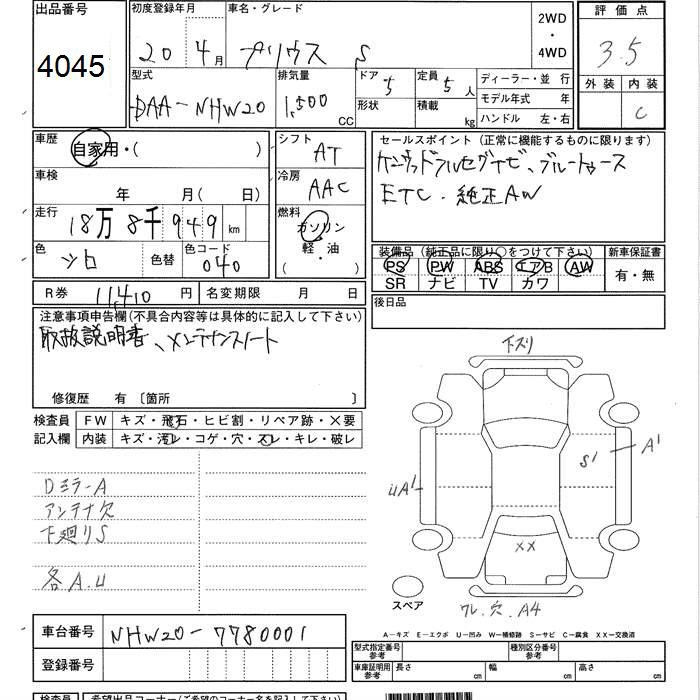 出品番号
4045
初度登録年月
20 4月
車名・グレード
プリウス S
2WD
・
4WD
評価点
3.5
外装 内装
C
型式
DAA-NHW20
排気量
1,500 CC
ドア 5
形状
定員 5 人
積載 kg
ディーラー・並行
モデル年式 年
ハンドル 左・右
車歴
自家用・( )
シフト
AT
車検
年 月( 日)
冷房
AAC
走行
18万8千949km
燃料
ガソリン
軽・油
( )
色
シロ
色替
色コード
040
セールスポイント（正常に機能するものに限ります）
ケンウッドフルセグナビ、ブルートゥース
ETC・純正AW
装備品（純正品に限り○をつけて下さい）
PS PW ABS エアB AW
SR ナビ TV カワ
新車保証書
有・無
R券 11410円
名変期限 月 日
後日品
注意事項申告欄(不具合内容等は具体的に記入して下さい)
取扱説明書、メンテナンスノート
修復歴 有〔箇所 〕
検査員
記入欄
FW キズ・飛石・ヒビ割・リペア跡・×要
内装 キズ・汚レ・コゲ・穴・スレ・キレ・破レ
Dミラー A
アンテナ欠
下廻りS
各A.U
下スリ
S1
A1
UA1
××
スペア
ワレ.穴.A4
A―キズ E―エクボ U―凹み W―補修跡 S―サビ C―腐食 XX―交換済
車台番号 NHW20-7780001
登録番号
型式指定番号
参考
種別区分番号
参考
車庫証明用
参考
長さ cm
幅 cm
高さ cm
検査員
希望出品コーナー(ご希望のコーナー名を記入下さい)